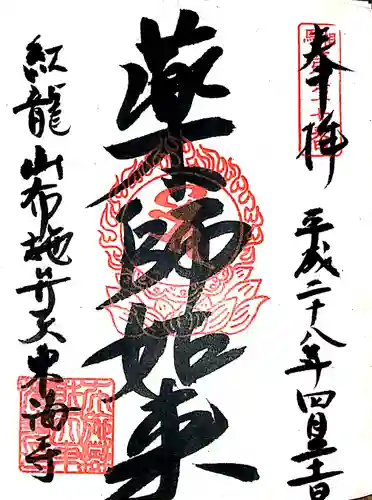 奉拝
平成二十八年四月三十日
薬師如来
紅龍山布施弁天東海寺